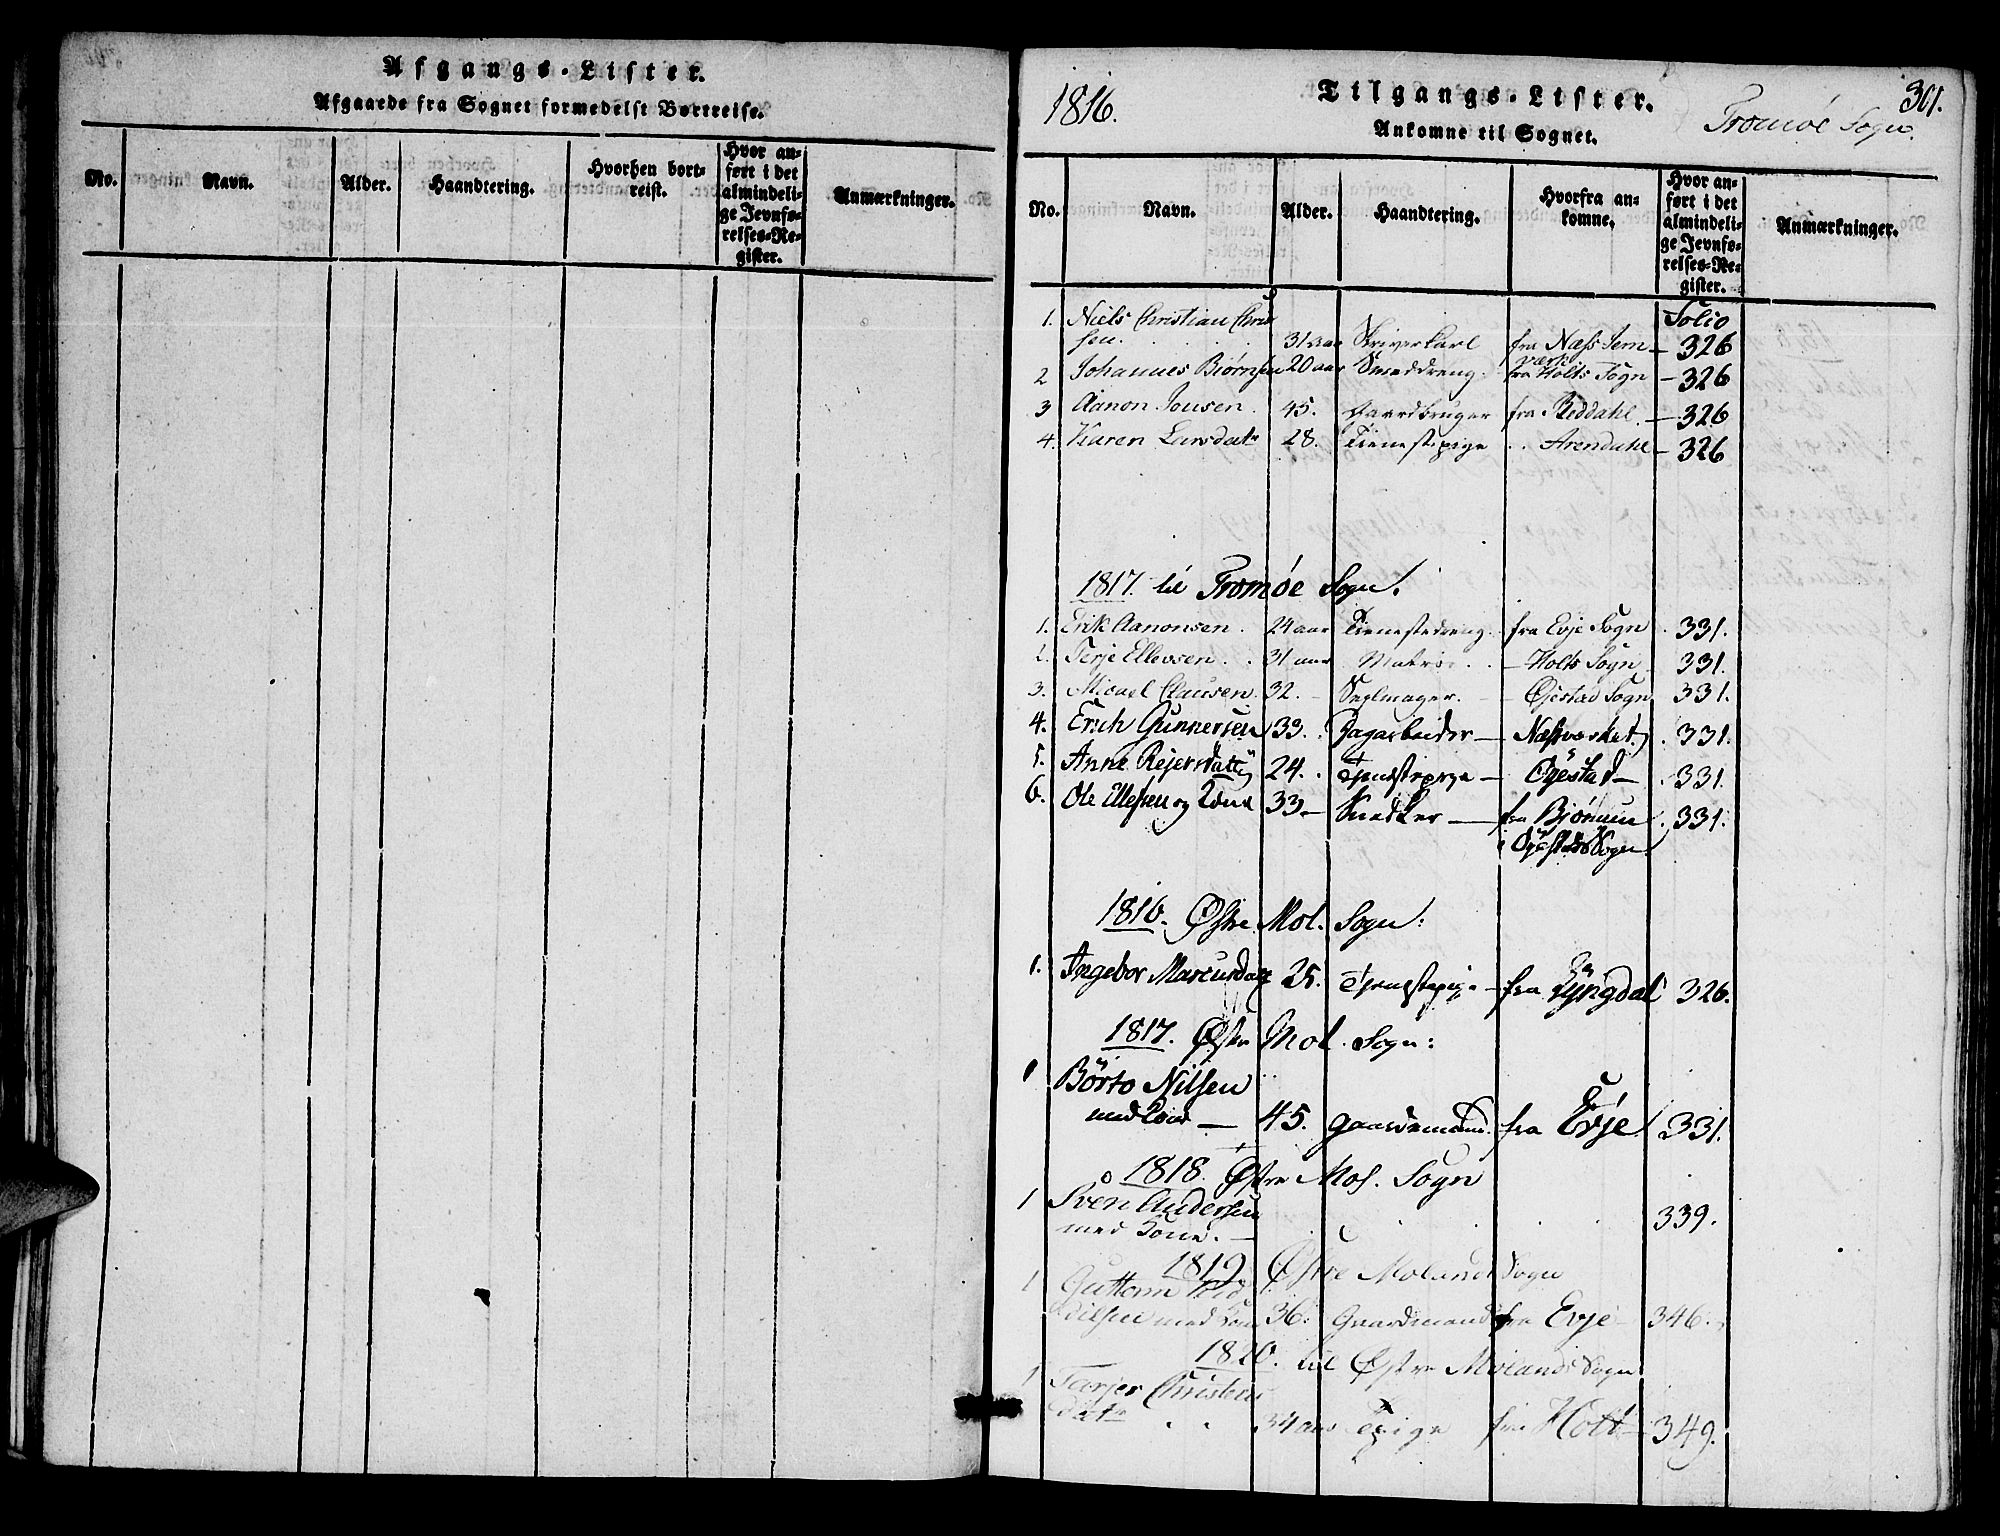 Afgangs-Lister.
Afgaaede fra Sognet formedelst Bortreise.
No. Navn. Alder. Haandtering. Hvorhen bortreist. Hvor anført i det almindelige Jevnførelses-Register. Anmærkninger.
1816. Tilgangs-Lister. 301.
Ankomne til Sognet. Tromøe Sogn.
No. Navn. Alder. Haandtering. Hvorfra ankomne. Hvor anført i det almindelige Jevnførelses-Register. Anmærkninger.
Folio
1. Niels Christian Chri
sen. 31 aar Skriverkarl fra Næss Jern 326
værk
2 Johannes Biørnsen 20 aar Smeddreng fra Holts Sogn - 326
3 Aanon Jonsen. 45. Gaardbruger fra - 326
4. Karen Larsdatr 28. Tienestepige .. Arendahl - 326
1817. til Tromøe Sogn.
1. Erik Aanonsen. 24 aar Tienestedreng. fra Evje Sogn . 331.
2. Terje Ellevsen. . 31 aar Matros . . - Holts Sogn 331.
3. Micael Clausen. 32. - Seglmager. - Øjestad Sogn 331.
4. Erich Gunnersen 33. . Dagarbeider - Næsværket . 331.
5. Anne Rejersdatter 24. . Tjenstepige - Öyestad - . 331.
6. Ole Ellefsen og Kone 33 - Snedker - fra Bjørnum . 331.
i Öyestads Sogn.
1816. Østre Mol. Sogn:
1. Ingebor Marcusdatr 25. Tjenstepige - fra Lyngdal 326.
1817. Østr Mol. Sogn:
1 Börto Nilsen
med Kone - 45. Gaardemand. fra Evje 331.
1818. Østre Mol. Sogn
1 Sven Andersen
med Kone. - 339.
1819. Østre Molands Sogn
1 Guttorm
med Kone 36. Gaardmand fra Evje - 346.
1820. til Østre Molands Sogn
1 Tarjer Christens
datr . . 34 aar Tpige fra Holt - 349.